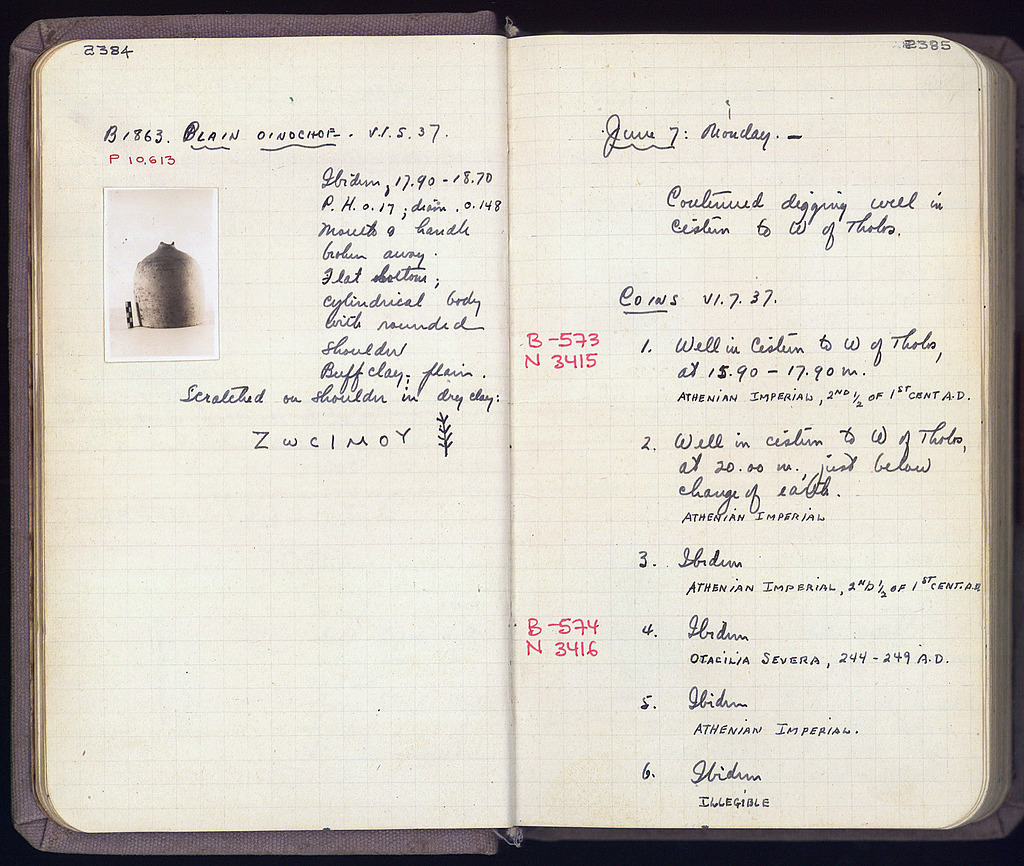 2384
B1863. PLAIN OINOCHOE. VI.5.37.
P 10,613
Ibidem, 17.90 - 18.70
P.H. 0.17; diam. 0.148
Mouth & handle
broken away.
Flat bottom;
cylindrical body
with rounded
shoulder
Buff clay; plain.
Scratched on shoulder in dry clay:
Z ω C I M O Y
2385
June 7: Monday. —
Continued digging well in
cistern to W of Tholos.
COINS VI.7.37.
B-573
N 3415
1. Well in Cistern to W of Tholos,
at 15.90 - 17.90 m.
ATHENIAN IMPERIAL, 2ND 1/2 OF 1ST CENT A.D.
2. Well in cistern to W of Tholos,
at 20.00 m., just below
change of earth.
ATHENIAN IMPERIAL
3. Ibidem
ATHENIAN IMPERIAL, 2ND 1/2 OF 1ST CENT. A.D.
B-574
N 3416
4. Ibidem
OTACILIA SEVERA, 244-249 A.D.
5. Ibidem
ATHENIAN IMPERIAL.
6. Ibidem
ILLEGIBLE